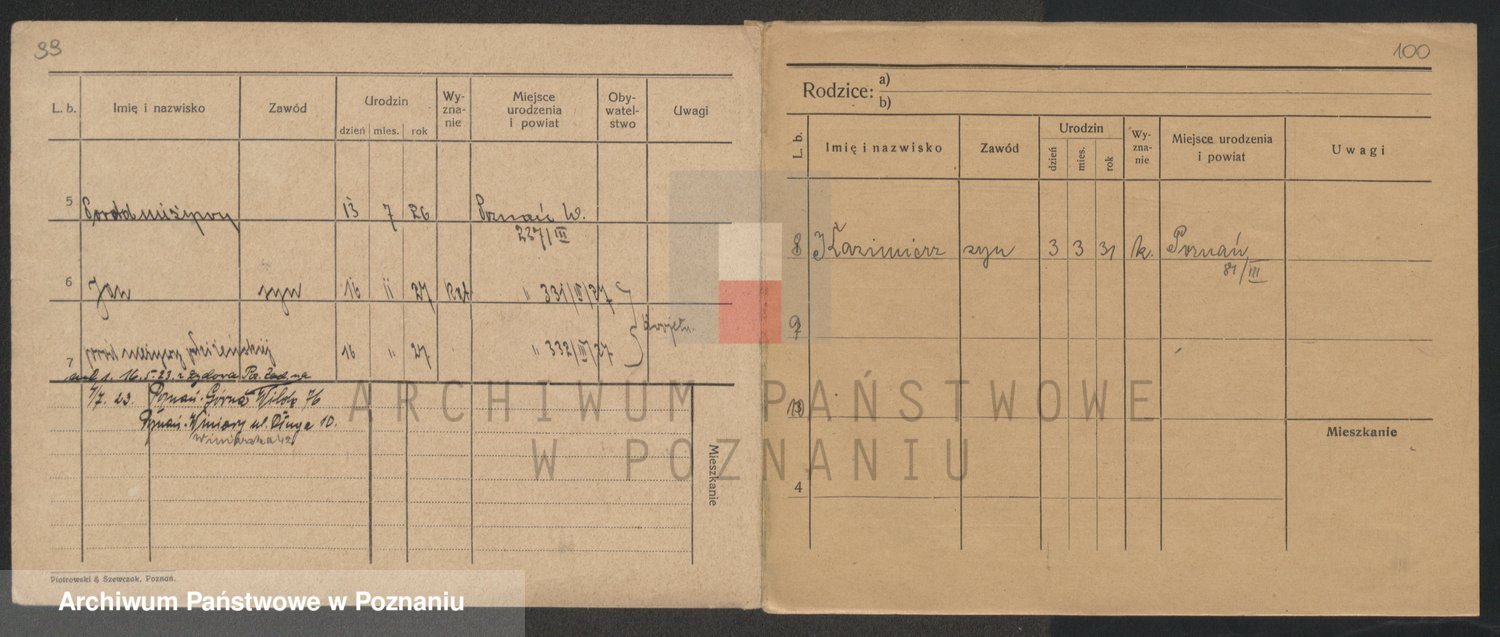 99
L. b. Imię i nazwisko Zawód Urodzin dzień mies. rok Wy-zna-nie Miejsce urodzenia i powiat Oby-watel-stwo Uwagi
5 13 7 26 Poznań W.
237/III
6 Jan syn 16 11 27 kat " 331/III/27
7 16 " 27 " 332/III/27
16.5.23
4/7. 23. Poznań-Górna Wilda 76
Poznań-Winiary ul. Długa 10.
Mieszkanie
Piotrowski & Szewczak, Poznań.
100
Rodzice: a)
b)
L. b. Imię i nazwisko Zawód Urodzin dzień mies. rok Wy-zna-nie Miejsce urodzenia i powiat Uwagi
8 Kazimierz syn 3 3 31 k. Poznań
81/III
9
4
Mieszkanie
ARCHIWUM PAŃSTWOWE
W POZNANIU
Archiwum Państwowe w Poznaniu